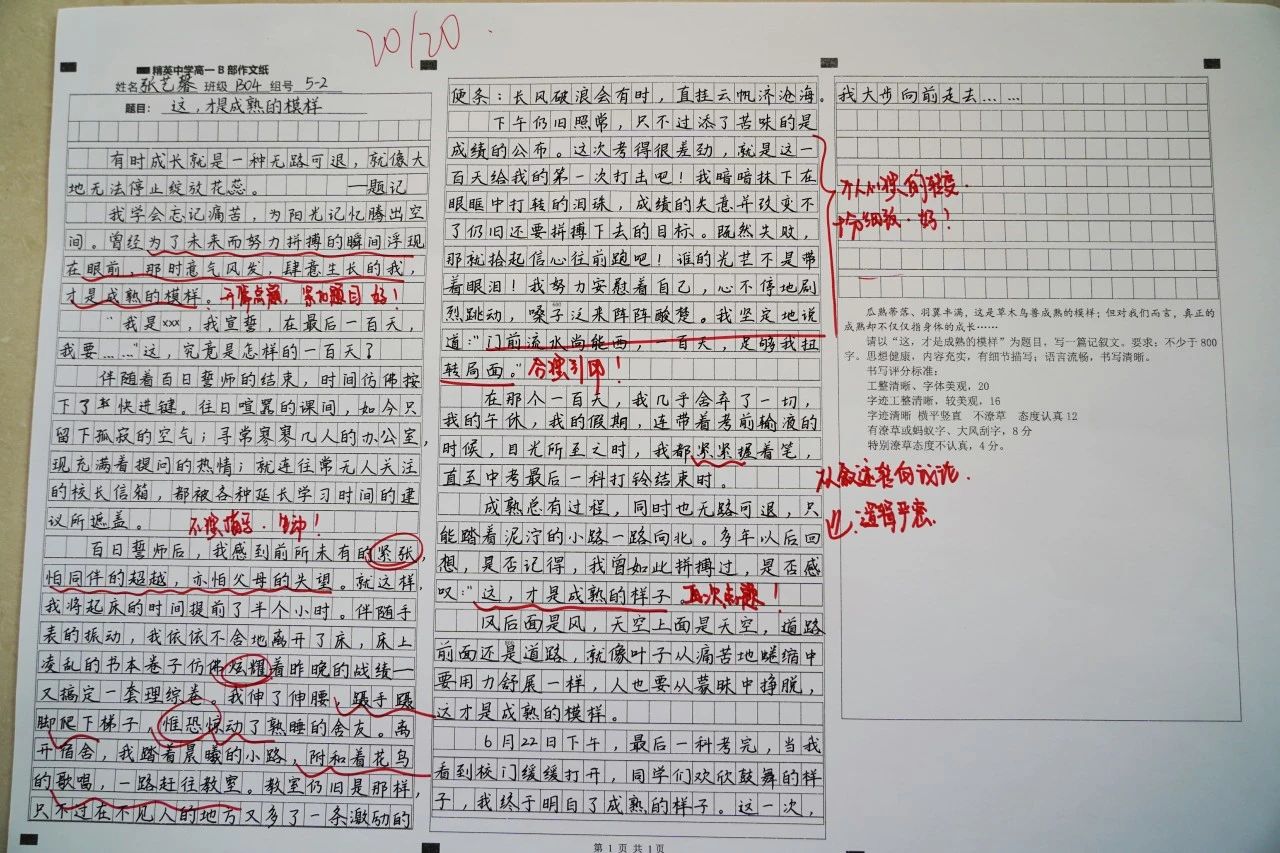 20/20.
精英中学高一B部作文纸
姓名张艺馨 班级 B04 组号 5-2
题目: 这,才是成熟的模样
有时成长就是一种无路可退,就像大
地无法停止绽放花蕊。 ——题记
我学会忘记痛苦,为阳光记忆腾出空
间。曾经为了未来而努力拼搏的瞬间浮现
在眼前,那时意气风发,肆意生长的我,
才是成熟的模样。开篇点题,紧扣题目 好!
"我是xxx,我宣誓,在最后一百天,
我要……"这,究竟是怎样的一百天?
伴随着百日誓师的结束,时间仿佛按
下了快进键。往日喧嚣的课间,如今只
留下孤寂的空气;寻常寥寥几人的办公室,
现充满着提问的热情;就连往常无人关注
的校长信箱,都被各种延长学习时间的建
议所遮盖。
环境描写,生动!
百日誓师后,我感到前所未有的紧张,
怕同伴的超越,亦怕父母的失望。就这样,
我将起床的时间提前了半个小时。伴随手
表的振动,我依依不舍地离开了床,床上
凌乱的书本卷子仿佛炫耀着昨晚的战绩—
又搞定一套理综卷。我伸了伸腰,蹑手蹑
脚爬下梯子,惟恐惊动了熟睡的舍友。离
开宿舍,我踏着晨曦的小路,附和着花鸟
的歌唱,一路赶往教室。教室仍旧是那样,
只不过在不见人的地方又多了一条激励的
便条:长风破浪会有时,直挂云帆济沧海。
下午仍旧照常,只不过添了苦味的是
成绩的公布。这次考得很差劲,就是这一
百天给我的第一次打击吧!我暗暗抹下在
眼眶中打转的泪珠,成绩的失意并改变不
了仍旧还要拼搏下去的目标。既然失败,
那就拾起信心往前跑吧!谁的光芒不是带
着眼泪!我努力安慰着自己,心不停地剧
烈跳动,嗓子泛来阵阵酸楚。我坚定地说
道:"门前流水尚能西,一百天,足够我扭
转局面。"合理引用!
在那个一百天,我几乎舍弃了一切,
我的午休,我的假期,连带着考前输液的
时候,目光所至之时,我都紧紧握着笔,
直至中考最后一科打铃结束时。
成熟总有过程,同时也无路可退,只
能踏着泥泞的小路一路向北。多年以后回
想,是否记得,我曾如此拼搏过,是否感
叹:"这,才是成熟的样子。再次点题!
风后面是风,天空上面是天空,道路
前面还是道路,就像叶子从痛苦地蜷缩中
要用力舒展一样,人也要从蒙昧中挣脱,
这才是成熟的模样。
6月22日下午,最后一科考完,当我
看到校门缓缓打开,同学们欢欣鼓舞的样
子,我终于明白了成熟的样子。这一次,
我大步向前走去……
十分细致.好!
从叙述转向议论.
逻辑严密.
瓜熟蒂落、羽翼丰满,这是草木鸟兽成熟的模样;但对我们而言,真正的
成熟却不仅仅指身体的成长……
请以"这,才是成熟的模样"为题目,写一篇记叙文。要求:不少于800
字。思想健康,内容充实,有细节描写;语言流畅,书写清晰。
书写评分标准:
工整清晰、字体美观,20
字迹工整清晰、较美观,16
字迹清晰 横平竖直 不潦草 态度认真 12
有潦草或蚂蚁字、大风刮字,8分
特别潦草态度不认真,4分。
第 1 页 共 1 页